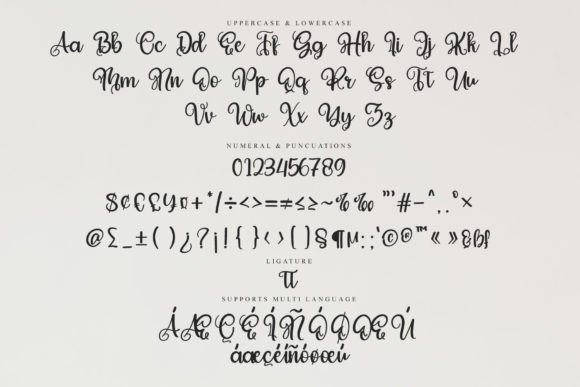 UPPERCASE & LOWERCASE
Aa Bb Cc Dd Ee Ff Gg Hh Ii Jj Kk Ll
Mm Nn Oo Pp Qq Rr Ss Tt Uu
Vv Ww Xx Yy Zz
NUMERAL & PUNCUATIONS
0123456789
$¢€£¥¤+*/÷<>=≠≤≥~‰ "'#-^,.°×
@Σ_±()¿?¡!{}‹›[]§¶µ:;'©®™«»&
LIGATURE
tt
SUPPORTS MULTI LANGUAGE
ÁÆÇÉÍÑÓØŒÚ
áæçéíñóøœú